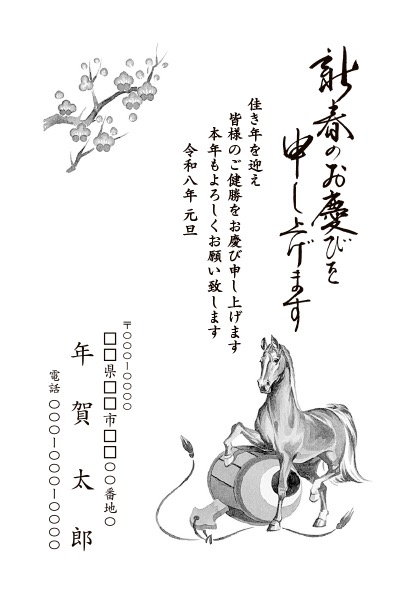 新春のお慶びを
申し上げます
佳き年を迎え
皆様のご健勝をお慶び申し上げます
本年もよろしくお願い致します
令和八年 元旦
〒○○○-○○○○
□□県□□市□□○○番地○
年賀太郎
電話 ○○○-○○○-○○○○